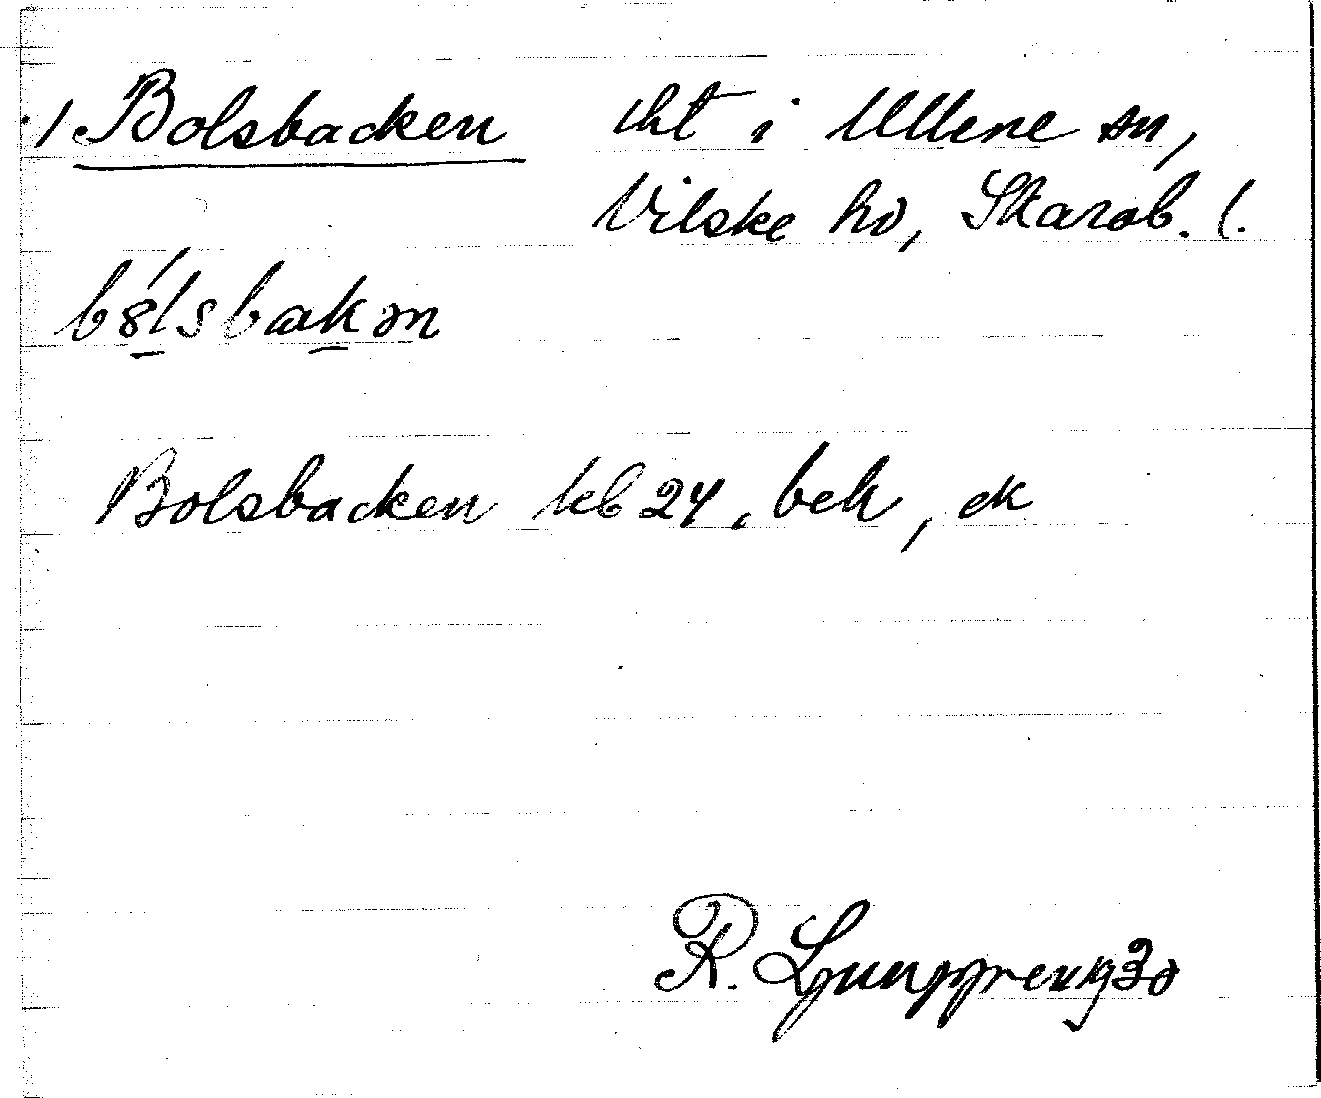 1. Bolsbacken tht i Ullene sn,
Vilske hd, Skarab. l.
b8́lsbakən
Bolsbacken kb 24, beh, ek
R. Ljunggren 1930